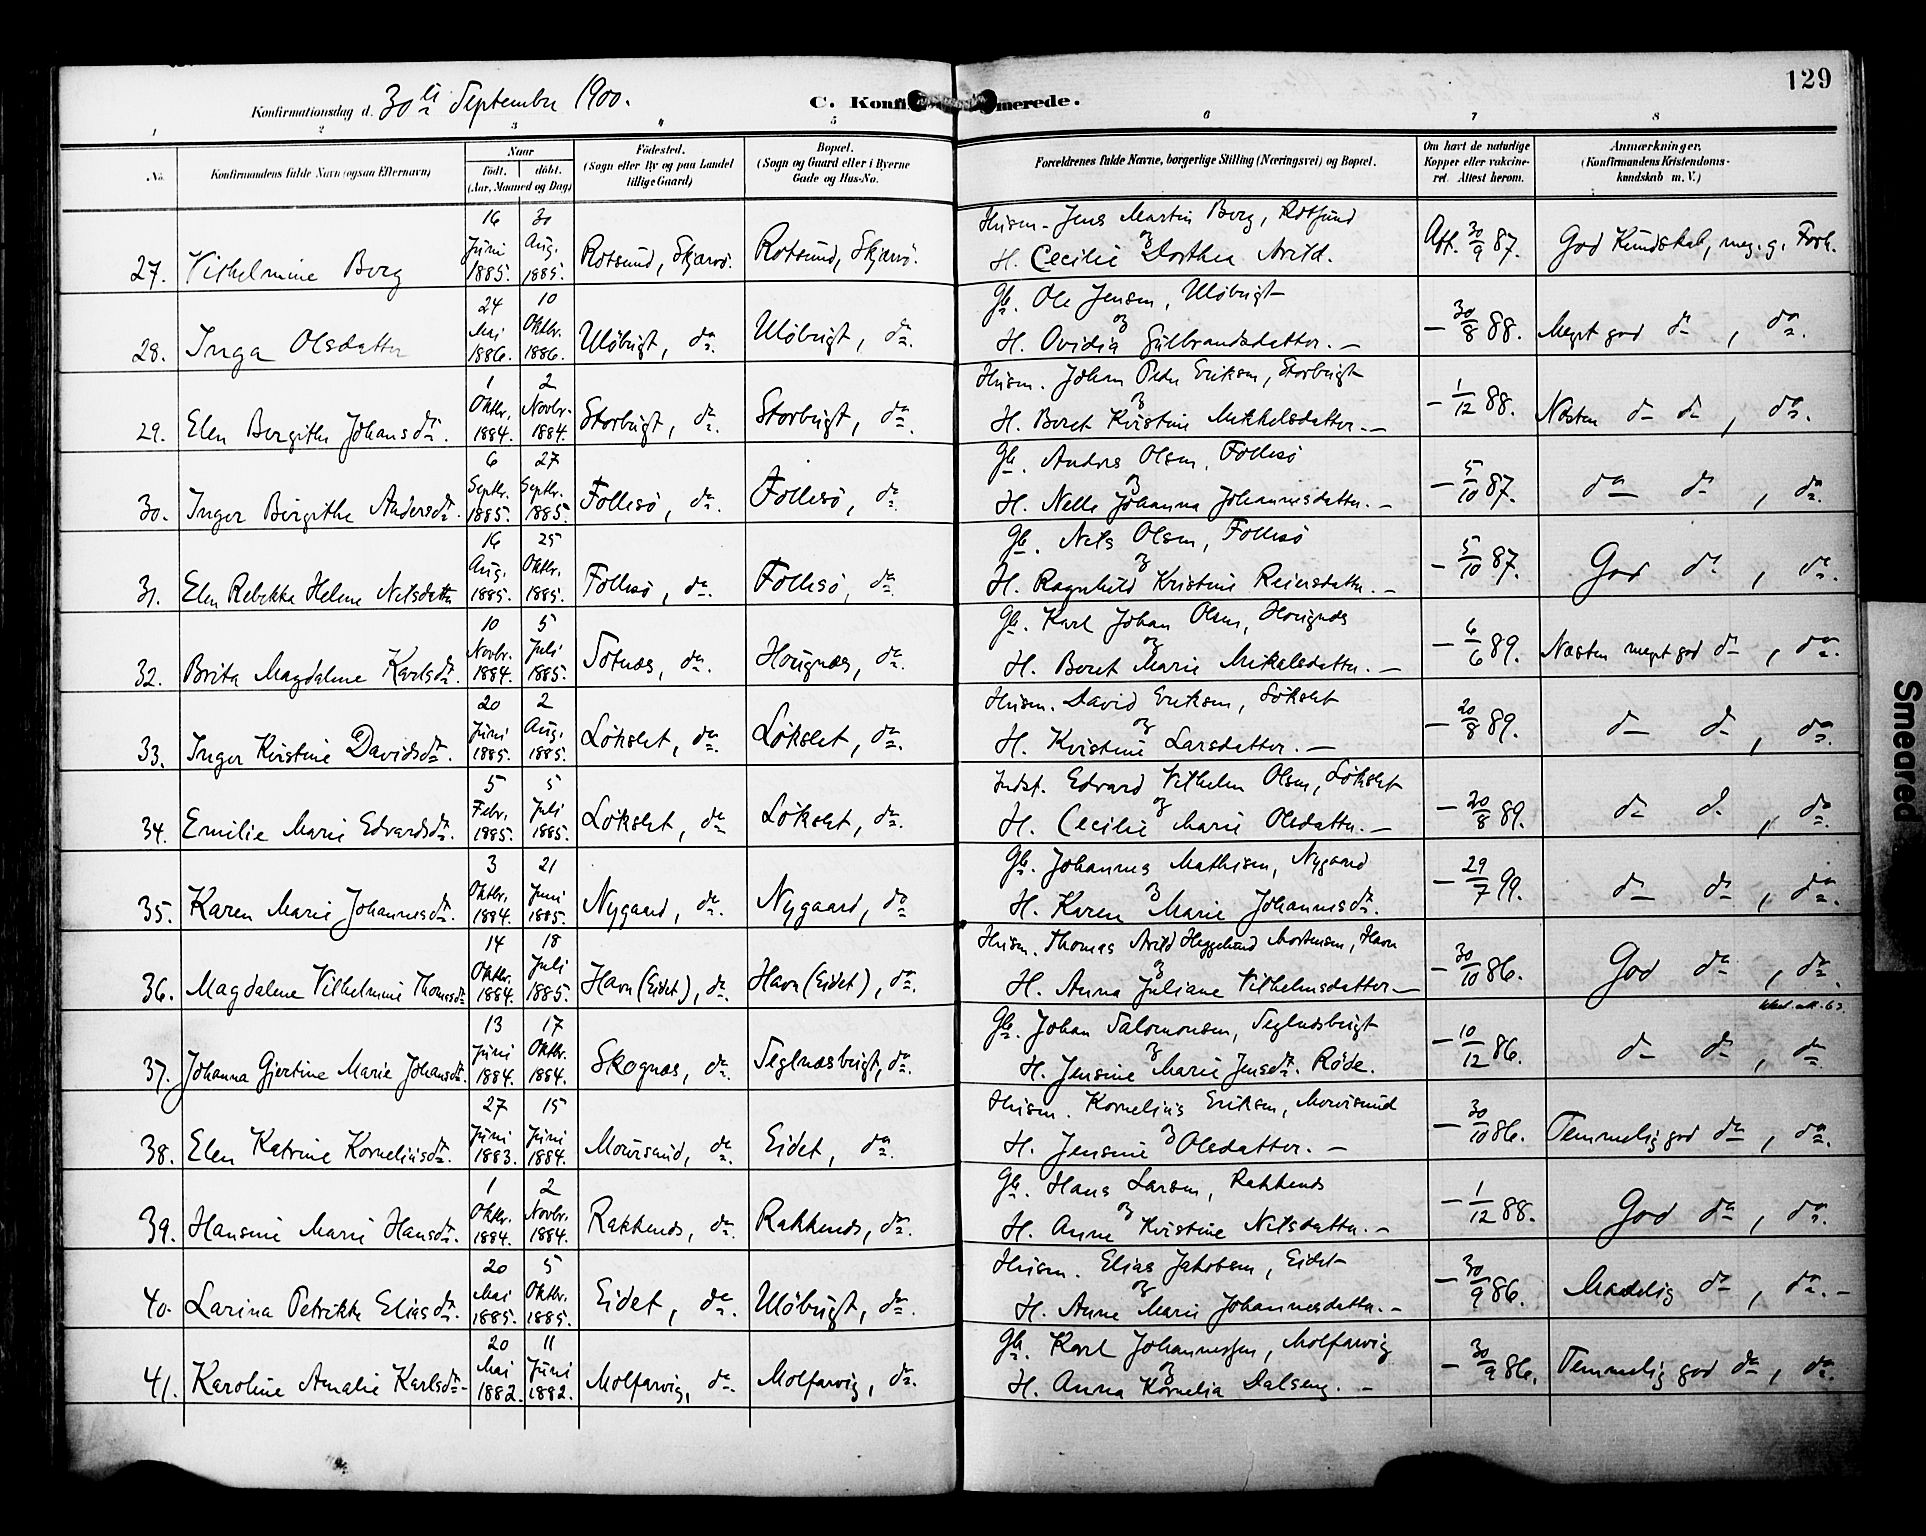 129
Konfirmationsdag d. 30te September 1900.
C. Konfirmerede.
1 2 3 4 5 6 7 8
No. Konfirmandens fulde Navn (ogsaa Efternavn)
Naar
født. døbt.
(Aar, Maaned og Dag)
Fødested.
(Sogn eller By og paa Landet
tillige Gaard)
Bopæl.
(Sogn og Gaard eller i Byerne
Gade og Hus-No.
Forældrenes fulde Navne, borgerlige Stilling (Næringsvei) og Bopæl.
Om havt de naturlige
Kopper eller vakcine-
ret. Attest herom.
Anmærkninger.
(Konfirmandens Kristendoms-
kundskab m. V.)
27. Vilhelmine Berg 16 Juni 1885. 30 Aug. 1885. Rotsund, Skjærvø. Rotsund, Skjærvø. Husm. Jens Martin Berg, Rotsund
og
H. Cecilie Dorthea Arild. Att. 30/9 87. God Kundskab, meg. g. Forh.
28. Inga Olsdatter 24 Mai 1886. 10 Oktbr. 1886. Uløbugt, do. Uløbugt, do. Gb. Ole Jensen, Uløbugt
og
H. Ovidia Gulbrandsdatter. — — 30/8 88. Meget god do, do.
29. Elen Bergithe Johansdr. 1 Oktbr. 1884. 2 Novbr. 1884. Storbugt, do. Storbugt, do. Husm. Johan Peder Eriksen, Storbugt
og
H. Beret Kristine Mikkelsdatter. — — 1/12 88. Næsten do do, do.
30. Inger Birgithe Andersdr. 6 Septbr. 1885. 27 Septbr. 1885. Follesø, do. Follesø, do. Gb. Anders Olsen, Follesø
og
H. Nelle Johanna Johannesdatter. — — 5/10 87. do do, do.
31. Elen Rebekka Helene Nilsdatter 16 Aug. 1885. 25 Oktbr. 1885. Follesø, do. Follesø, do. Gb. Nils Olsen, Follesø
og
H. Ragnhild Kristine Reiersdatter. — — 5/10 87. God do, do.
32. Brita Magdalene Karlsdr. 10 Novbr. 1884. 5 Juli 1885. Sotnæs, do. Hougnæs, do. Gb. Karl Johan Olsen, Hougnæs
og
H. Beret Marie Mikalsdatter. — — 6/6 89. Næsten meget god do, do.
33. Inger Kristine Davidsdr. 20 Juni 1885. 2 Aug. 1885. Løkslet, do. Løkslet, do. Husm. David Eriksen, Løkslet
og
H. Kristine Larsdatter. — — 20/8 89. do do, do.
34. Emilie Marie Edvardsdr. 5 Febr. 1885. 5 Juli 1885. Løkslet, do Løkslet, do. Indst. Edvard Vilhelm Olsen, Løkslet
og
H. Cecilie Marie Olsdatter. — — 20/8 89. do do, do.
35. Karen Marie Johannesdr. 3 Oktbr. 1884. 21 Juni 1885. Nygaard, do. Nygaard, do Gb. Johannes Mathisen, Nygaard
og
H. Karen Marie Johannesdr. — 29/7 99. do do, do.
36. Magdalene Vilhelmine Thomasdr 14 Oktbr. 1884. 18 Juli 1885. Havn (Eidet), do. Havn (Eidet), do. Husm. Thomas Arild Heggelund Mortensen, Havn
og
H. Anna Juliane Vilhelmsdatter — — 30/10 86. God do, do.
37. Johanna Gjertine Marie Johansdr. 13 Juni 1884. 17 Oktbr. 1884. Skognæs, do. Teglnæsbugt, do. Gb. Johan Salomonsen, Teglnæsbugt
og
H. Jensine Marie Jensdr. Røde. — 10/12 86. do do, do.
38. Elen Katrine Korneliusdr. 27 Juni 1883. 15 Juni 1884. Mourisund, do. Eidet, do. Husm. Kornelius Eriksen, Mourisund
og
H. Jensine Olsdatter. — — 30/10 86. Temmelig god do, do.
39. Hansine Marie Hansdr. 1 Oktbr. 1884. 2 Novbr. 1884. Rakkenæs, do. Rakkenæs, do. Gb. Hans Larsen, Rakkenæs
og
H. Anne Kristine Nilsdatter. — — 1/12 88. God do, do.
40. Larina Petrikke Eliasdr. 20 Mai 1885. 5 Oktbr. 1885. Eidet, do. Uløbugt, do. Husm. Elias Jakobsen, Eidet
og
H. Anne Marie Johannesdatter. — — 30/9 86. Maadelig do, do. —
41. Karoline Amalie Karlsdr. 20 Mai 1882. 11 Juni 1882. Molfarvig, do. Molfarvig, do. Gb. Karl Johannessen, Molfarvig
og
H. Anna Kornelia Dalseng. — — 30/9 86. Temmelig god do, do.
Smeared